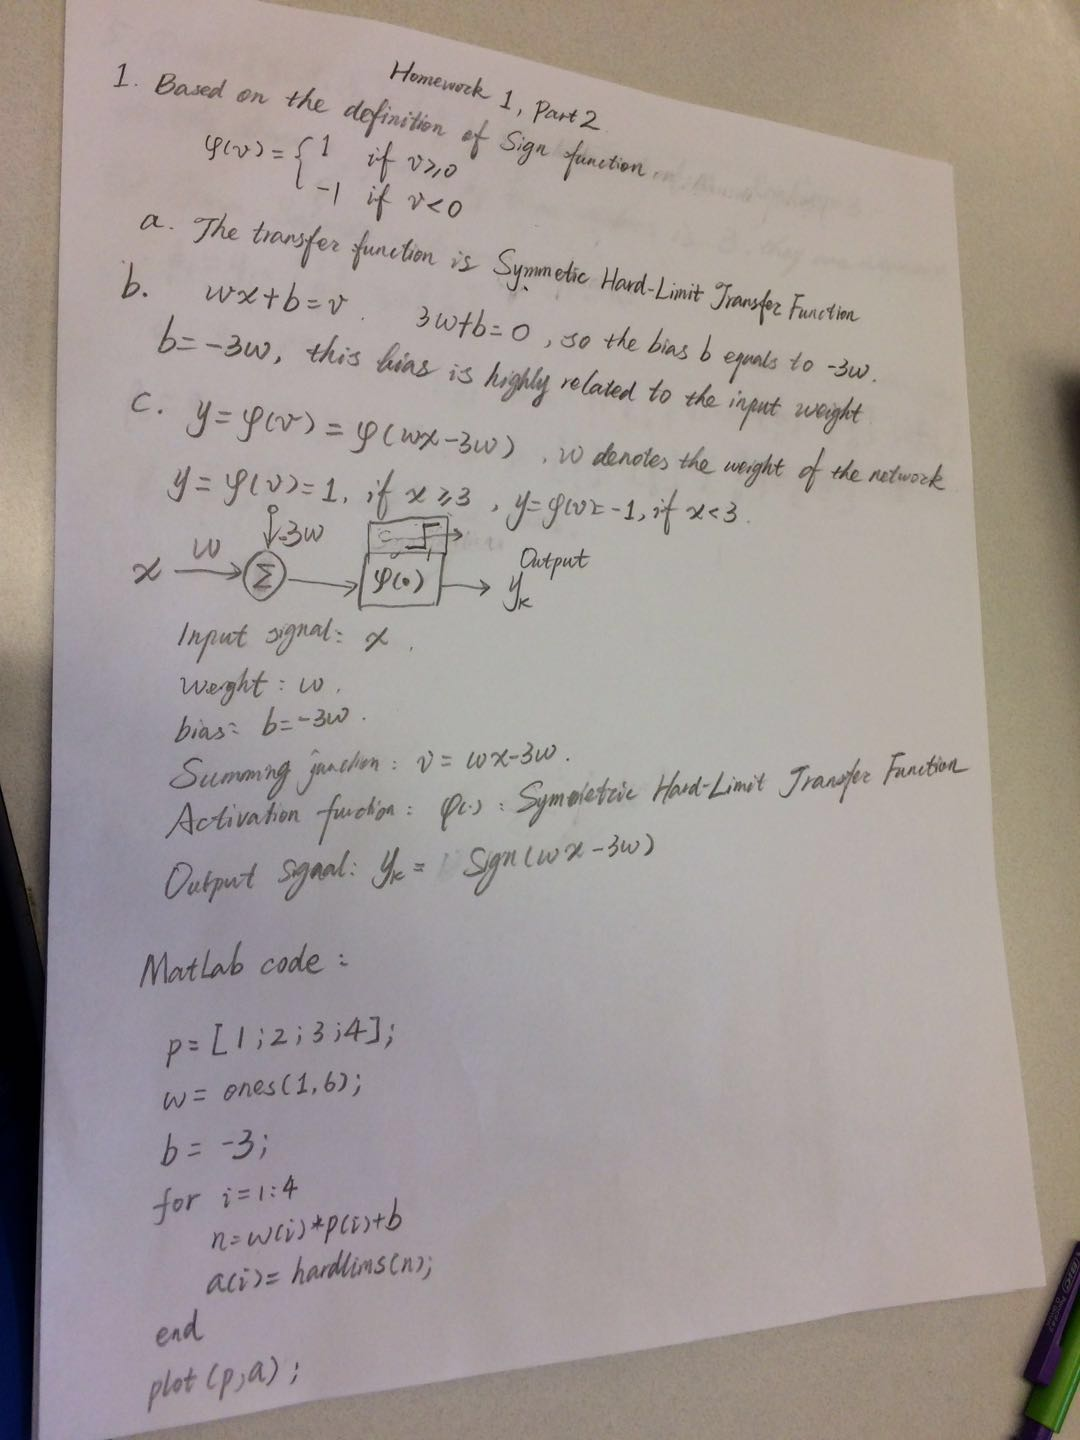 Homework 1, Part 2
1. Based on the definition of Sign function
φ(v) = { 1 if v≥0
-1 if v<0
a. The transfer function is Symmetic Hard-Limit Transfer Function
b. wx+b=v. 3w+b=0, so the bias b equals to -3w.
b=-3w, this bias is highly related to the input weight
c. y=φ(v)=φ(wx-3w), w denotes the weight of the network
y=φ(v)=1, if x≥3, y=φ(v)=-1, if x<3.
-3w
x w Σ φ(·) Output
y_k
Input signal: x.
Weight: w.
bias: b=-3w.
Summing junction: v = wx-3w.
Activation function: φ(·): Symmetric Hard-Limit Transfer Function
Output signal: y_k = Sign(wx-3w)
MatLab code:
p=[1;2;3;4];
w= ones(1,6);
b= -3;
for i=1:4
n=w(i)*p(i)+b
a(i)= hardlims(n);
end
plot(p,a);